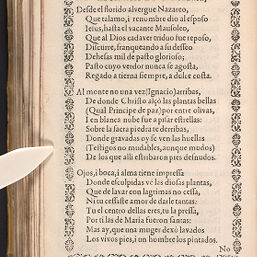 Desde el florido alvergue Nazareo,
Que talamo, i renombre dio al esposo
Iesus, hasta el vacante Mausoleo,
Que al Dios cadaver triduo fue reposo,
Discurre, franqueando a su desseo
Dehesas mil de pasto glorioso;
Pasto cuyo verdor nunca se agosta,
Regado a tierna siempre, a dulce costa.
Al monte no una vez (Ignacio) arribas,
De donde Christo alçò las plantas bellas
(Qual Principe de paz) por entre olivas,
I en blanca nube fue a pisar estrellas:
Sobre la sacra piedra te derribas,
Donde gravadas oy se ven las huellas
(Testigos no mudables, aunque mudos)
De los que alli estribaron pies desnudos.
Ojos, i boca, i alma tiene impressa
Donde esculpidas vè las diosas plantas,
Que de lavar con lagrimas no cessa,
Ni tu cessaste amor de darle tantas.
Tu el centro dellas eres, tu la pressa,
Por ti las de Maria fueron santas:
Mas ay, que una muger dexò lavados
Los vivos pies, i un hombre los pintados.
No